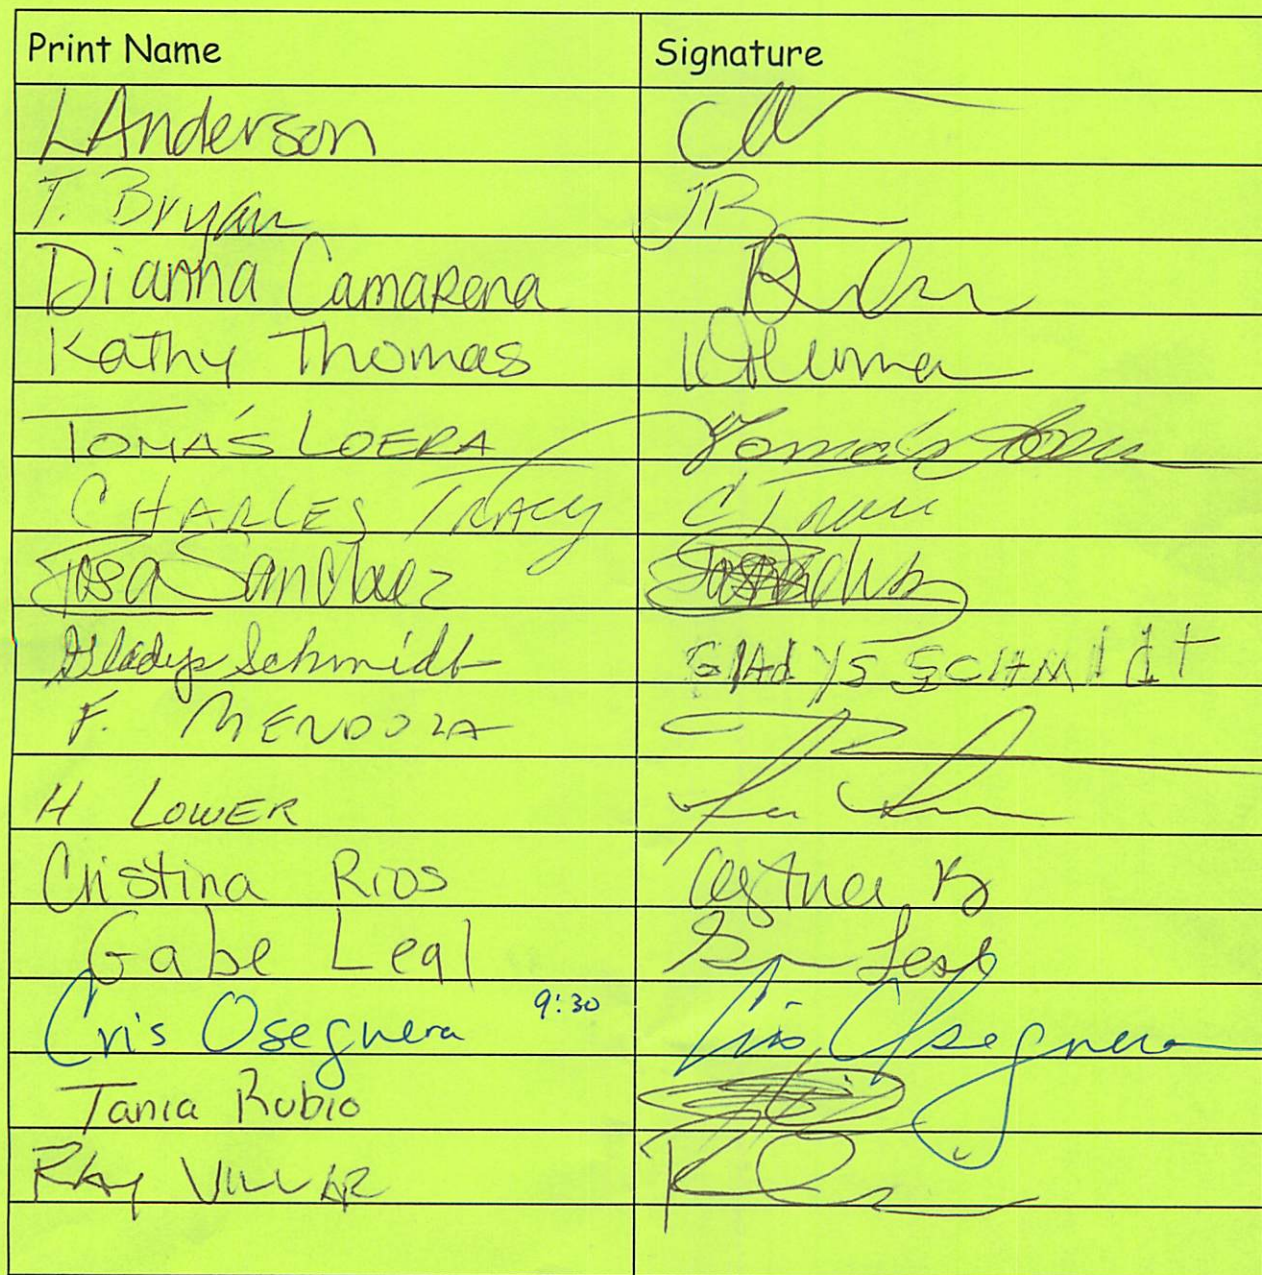 Print Name Signature
L Anderson
T. Bryan
Dianna Camarena
Kathy Thomas
TOMÁS LOERA Tomás Loera
CHARLES TRACY C Tracy
Rosa Sanchez
Gladys Schmidt GlAdYS SCHMIdt
F. MENDOZA
H LOWER
Cristina Rios
Gabe Leal
Cris Oseguera 9:30 Cris Oseguera
Tania Rubio
RAY VILLAR